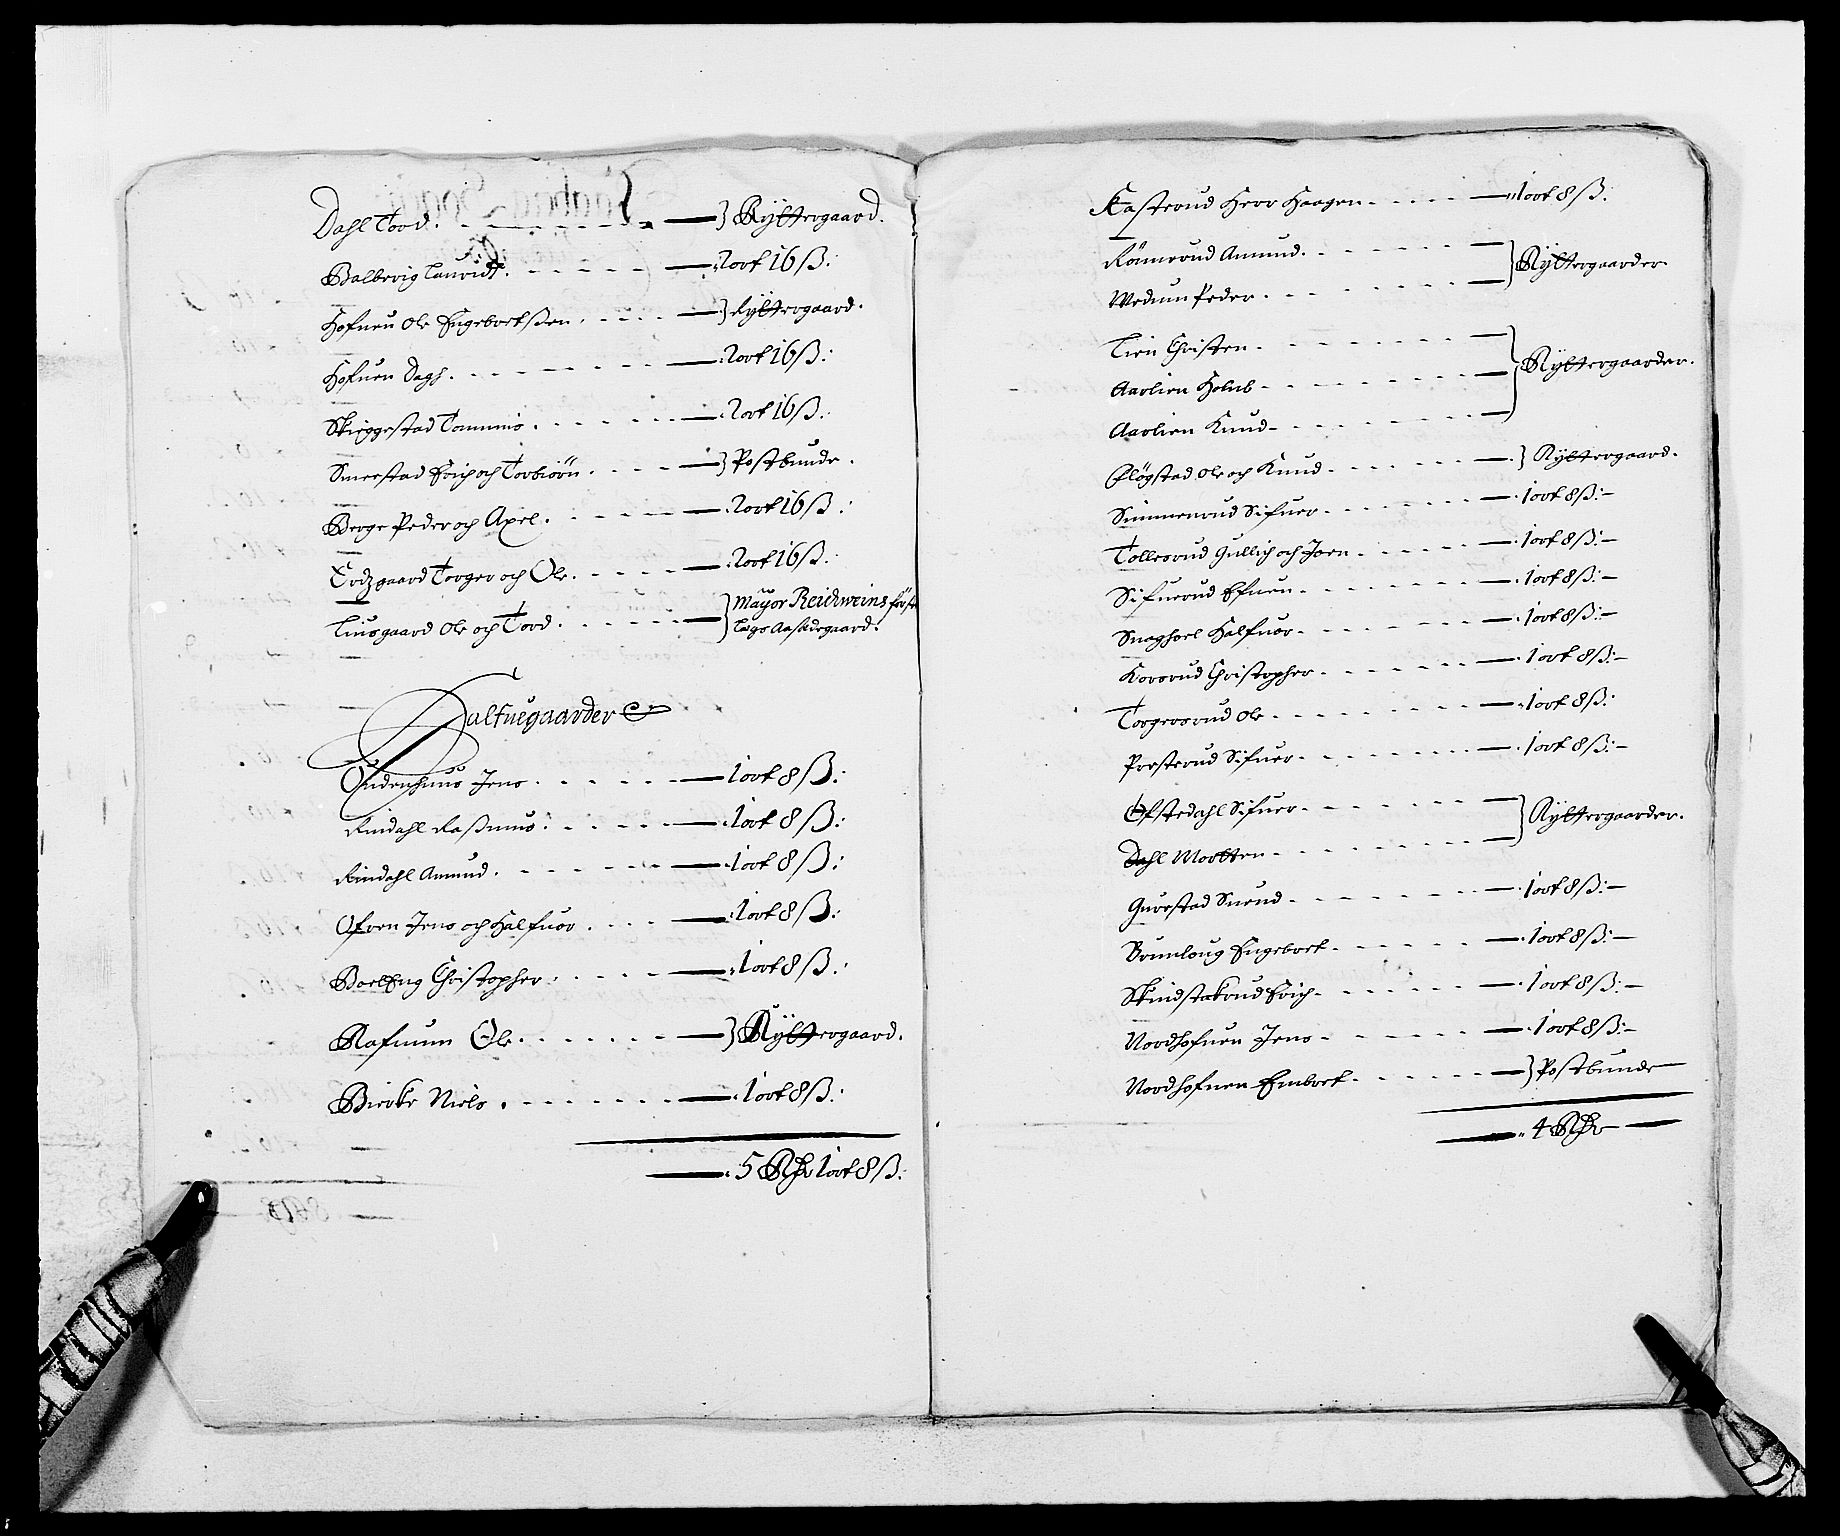 Dahl Tord. } Rÿttergaard.
Balberig Lauridt. 2ort 16ß:
Hofuen Ole Engebretßen } Rÿttergaard.
Hofuen Dagh. 2ort 16ß:
Skieggestad Tommis. 2ort 16ß:
Smestad Erich och Torbiörn. } Postbunde.
Berge Peder och Axel. 2ort 16ß:
Trdzgaard Torger och Ole. 2ort 16ß:
Liusgaard Ole och Tord. } Mayor Reichweins
Lugs Aasædegaard.
Halfuegaarder
Gudenhuus Jens. 1ort 8ß:
Rindahl Raßmus. 1ort 8ß:
Rindahl Amund. 1ort 8ß:
Ofren Jens och Halfuor. 1ort 8ß:
Boeleng Christopher. 1ort 8ß:
Rafnum Ole. } Rÿttergaard.
Bierke Niels. 1ort 8ß:
5 Rdr 1ort 8ß:
Kasterud Herr Haagen. 1ort 8ß:
Rönnerud Amund. } Rÿttergaarder
Wedum Peder.
Lien Christen. } Rÿttergaarder.
Aarlien Holub
Aarlien Knud
Fløgstad Ole och Knud. } Rÿttergaard.
Simmenrud Sifuer. 1ort 8ß:
Tollersrud Gullich och Joen. 1ort 8ß:
Sifuerud Efuen. 1ort 8ß:
Snaghoel Halfuor. 1ort 8ß:
Korsrud Christopher. 1ort 8ß:
Torgersrud Ole. 1ort 8ß:
Presterud Sifuer. 1ort 8ß:
Ofstedahl Sifuer. } Rÿttergaarder.
Dahl Mortten
Gurestad Suend. 1ort 8ß:
Brunloug Engebret. 1ort 8ß:
Skindstakrud Erich. 1ort 8ß:
Nordhofuen Jens. 1ort 8ß:
Nordhofuen Embret. } Postbunde
4 Rdr